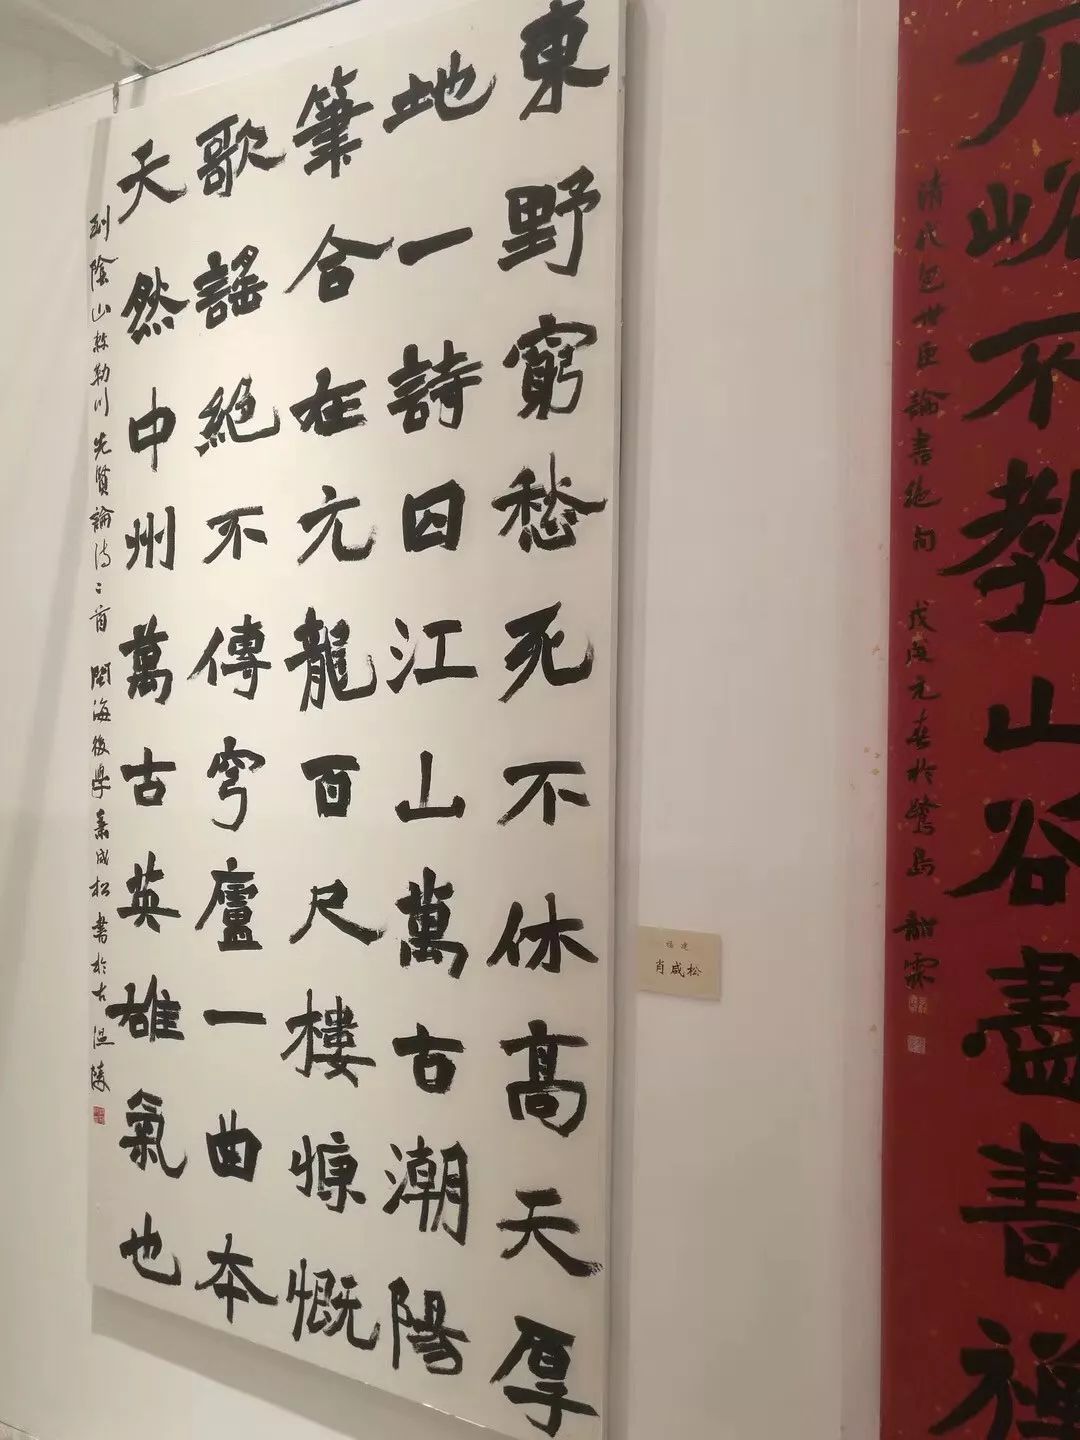 不教山谷盡書禪
清代包世臣論書絕句 戊戌元春於鷺島
東野窮愁死不休高天厚
地一詩囚江山萬古潮陽
筆合在元龍百尺樓慷慨
歌謠絕不傳穹廬一曲本
天然中州萬古英雄氣也
到陰山敕勒川 先賢論詩二首 閩海後學蕭成松書於古溫陵
福建
肖成松